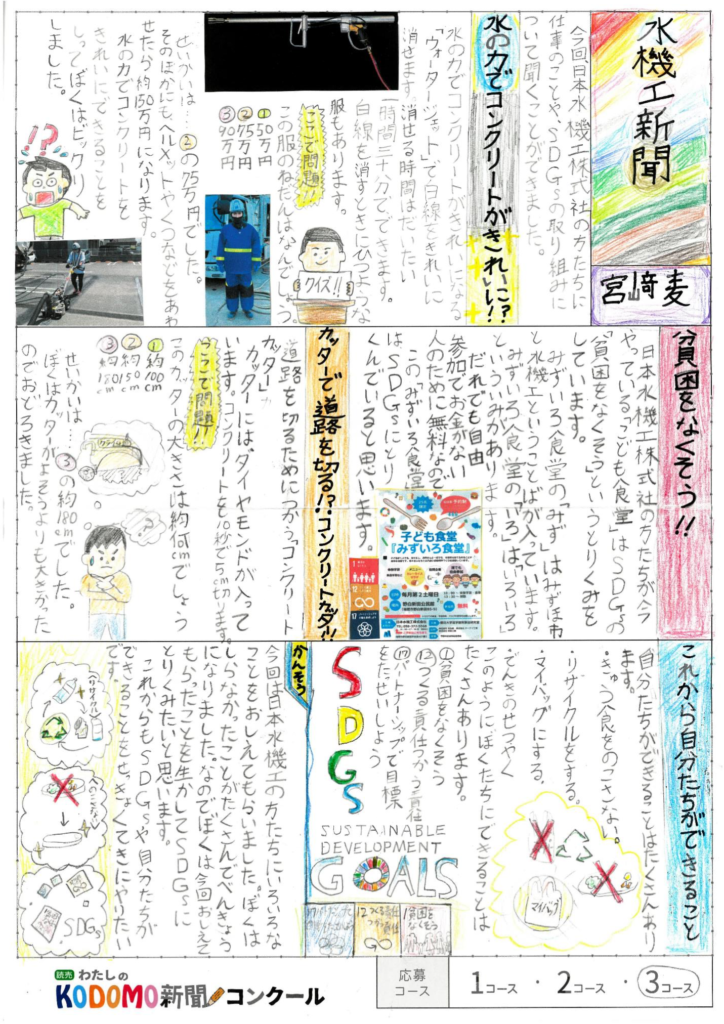 水機工新聞
宮﨑麦
今回日本水機工株式社の方たちに
仕事のことやSDGsの取り組みに
ついて聞くことができました。
水の力でコンクリートがきれいに?!
水の力でコンクリートがきれいになる
「ウォータージェット」で白線をきれいに
消せます。消せる時間はだいたい
一時間三十分でできます。
白線を消すときにひつような
服もあります。
ここで問題!!
この服のねだんはなんでしょう。
①50万円
②75万円
③90万円
クイズ!!
せいかいは…②の75万円でした。
そのほかにもヘルメットやくつなどをあわ
せたら約150万円になります。
水の力でコンクリートを
きれいにできることを
しってぼくはビックリ
しました。
!?
貧困をなくそう!!
日本水機工株式社の方たちが今
やっている「こども食堂」は、SDGsの
「貧困をなくそう」というとりくみを
しています。
みずいろ食堂の「みず」はみずほ町
と水機工ということばが入っています。
みずいろ食堂の「いろ」は「いろいろ」
といういみがあります。
だれでも自由
参加でお金がない
人のために無料なので
このみずいろ食堂
はSDGsにとり
くんでいると思います。
子ども食堂
『みずいろ食堂』
毎月第2土曜日
無料
カッターで道路を切る!?コンクリートカッター!!
道路を切るためにつかう「コンクリート
カッター」
カッターには、ダイヤモンドが入って
います。コンクリートを10秒で5cm切ります。
ここで問題!!
このカッターの大きさは約何cmでしょう
①約100cm
②約150cm
③約180cm
せいかいは…③の約180cmでした。
ぼくはカッターがよそうよりも大きかった
のでおどろきました。
!?
これから自分たちができること
自分たちができることはたくさんあり
ます。
・きゅう食をのこさない。
・リサイクルをする。
・マイバッグにする。
・でんきのせつやく
このようにぼくたちにできることは
たくさんあります。
①貧困をなくそう
⑫つくる責任つかう責任
⑰パートナーシップで目標
をたっせいしよう
マイバッグ
SDGs
SUSTAINABLE
DEVELOPMENT
GOALS
1貧困をなくそう
12つくる責任つかう責任
かんそう
今回は日本水機工の方たちにいろいろな
ことをおしえてもらいました。ぼくは
しらなかったことがたくさんでべんきょう
になりました。なのでぼくは今回おしえて
もらったことを生かしてSDGsに
とりくみたいと思います。
これからもSDGsや自分たちが
できることをせっきょくてきにやりたい
です。
リサイクル
SDGs
読売 わたしの
KODOMO新聞コンクール
応募
コース
1コース ・ 2コース ・ 3コース